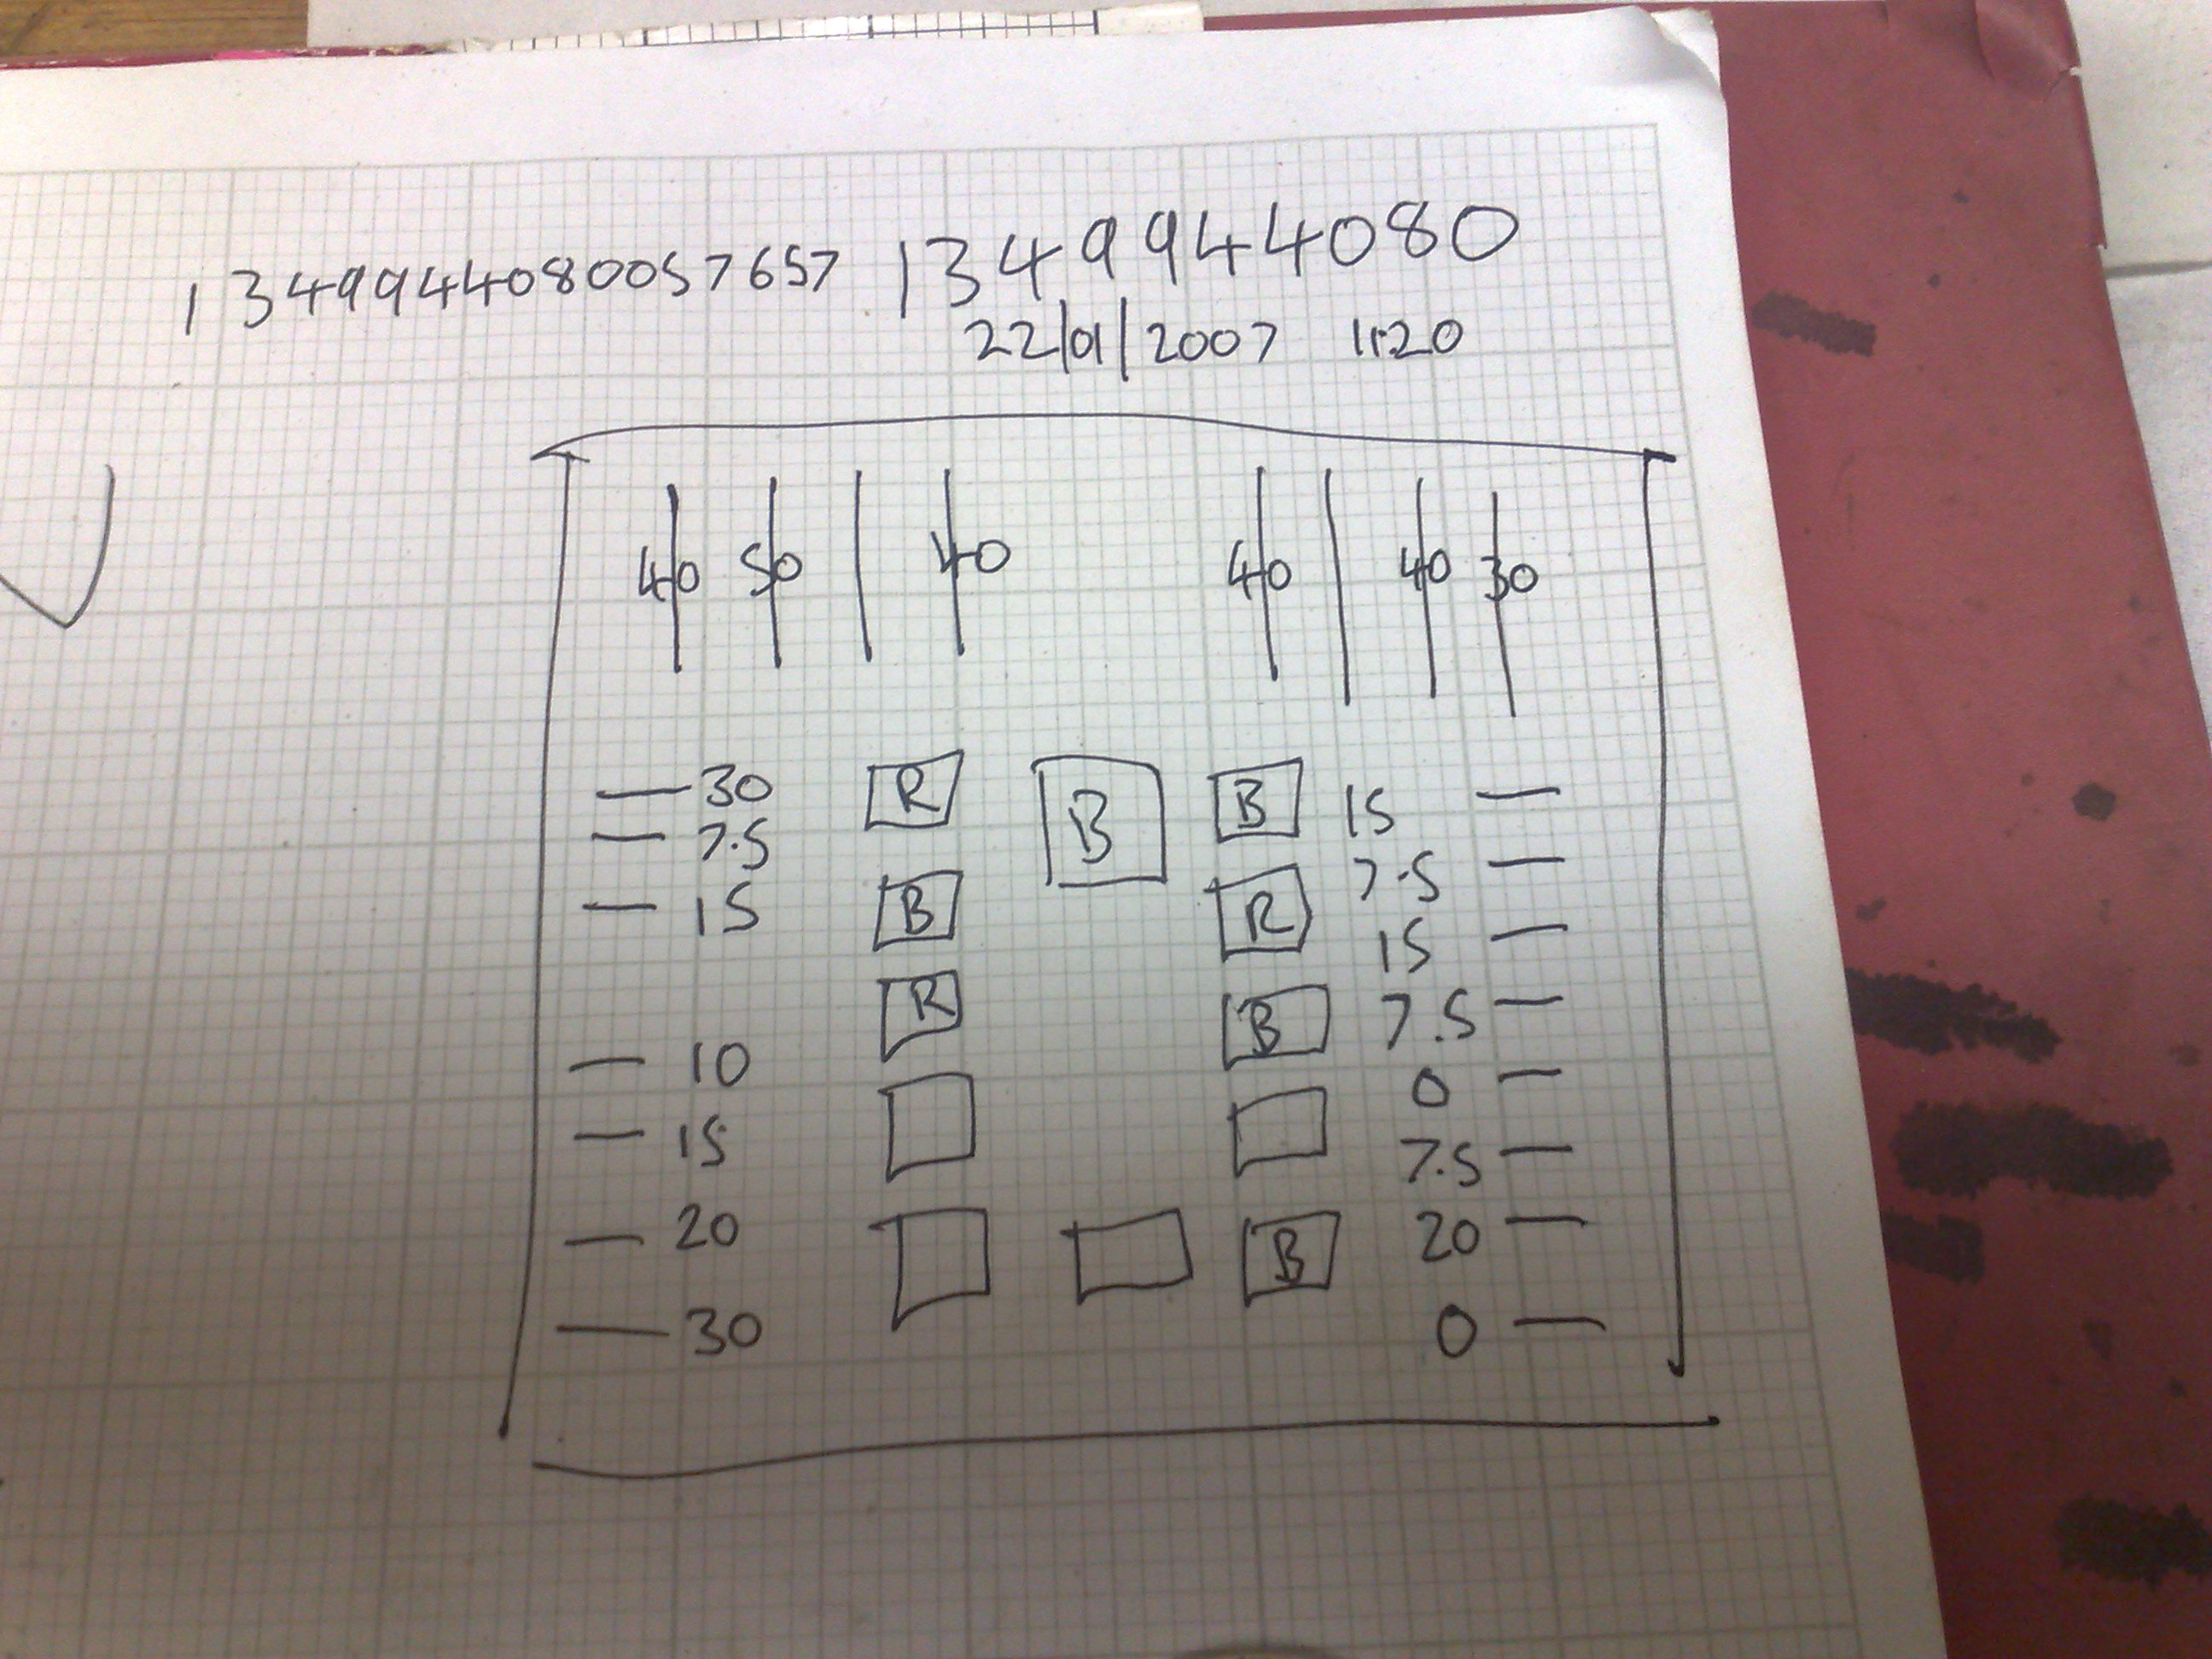 1349944080057657 1349944080
22/01/2007 11:20
40 50 40 40 40 30
30 R B B 15
7.5 7.5
15 B R 15
R B 7.5
10 0
15 7.5
20 B 20
30 0